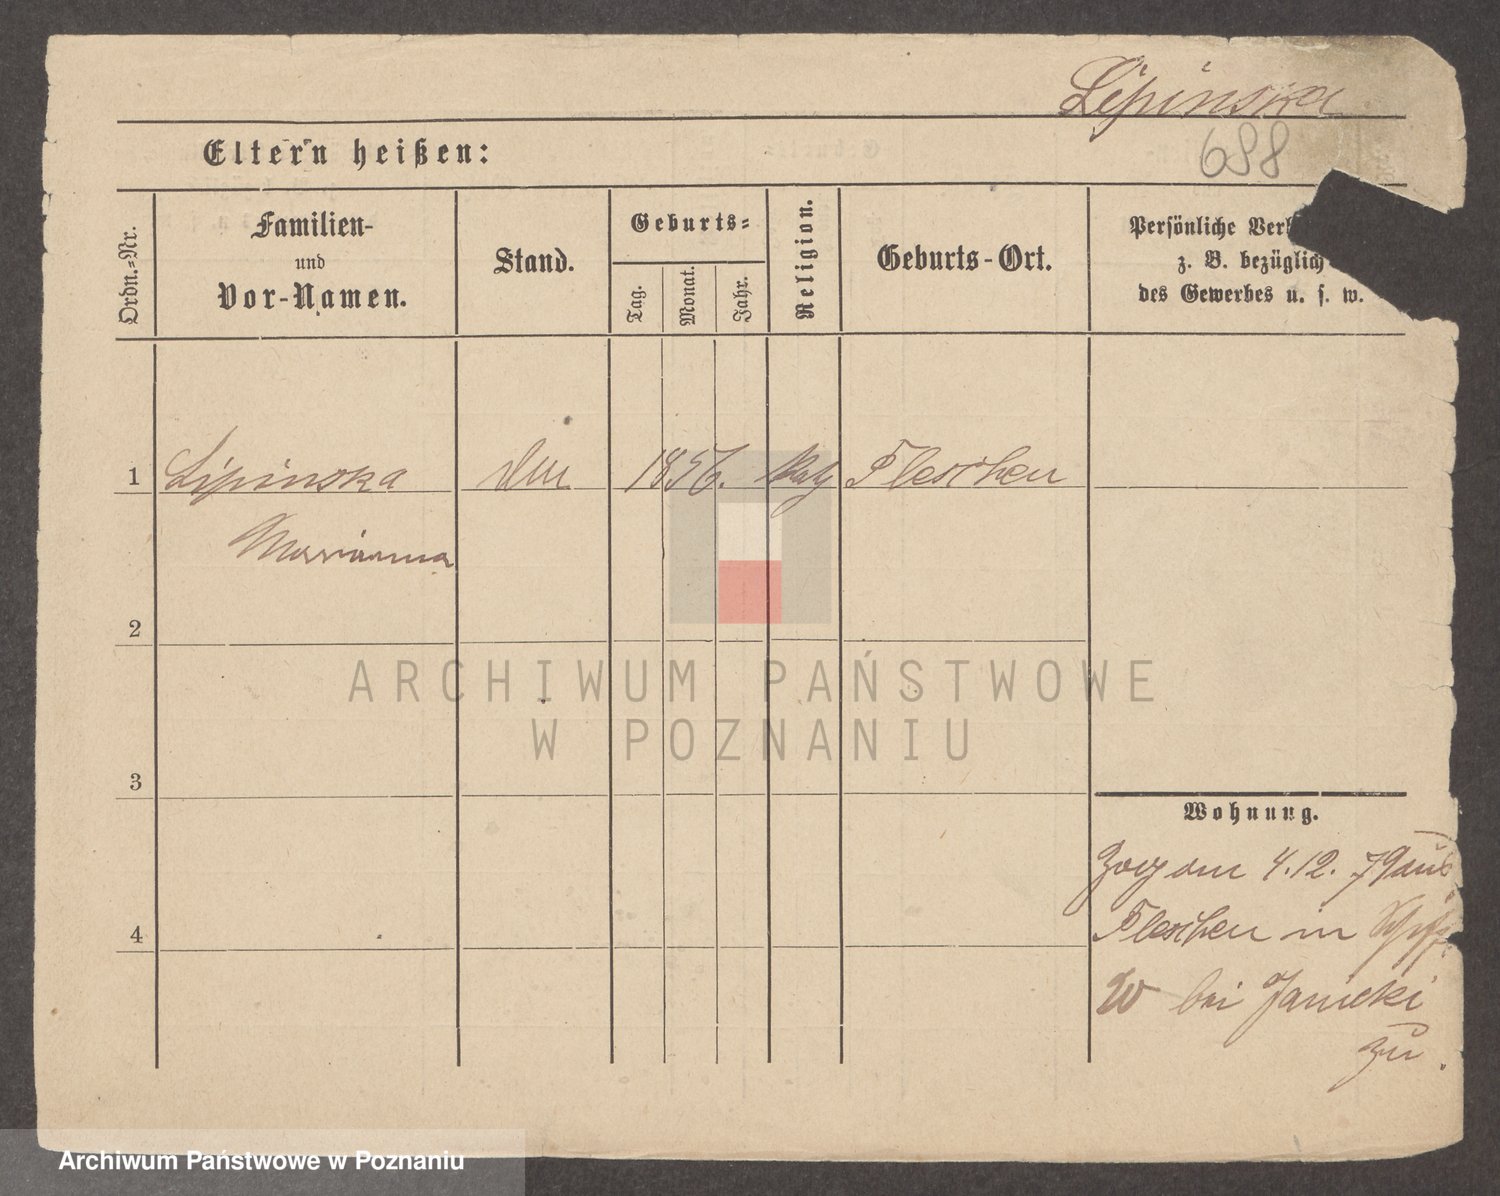 Lipinska
688
Eltern heißen:
Ordn.=Nr.
Familien-
und
Vor-Namen.
Stand.
Geburts=
Tag.
Monat.
Jahr.
Religion.
Geburts-Ort.
Persönliche
z. B. bezüglich
des Gewerbes u. s. w.
1 Lipinska 1856. Kath Pleschen
Marianna
2
3
4
Wohnung.
Zog am 4.12.79 aus
Pleschen in
bei Janicki
zu.
ARCHIWUM PAŃSTWOWE
W POZNANIU
Archiwum Państwowe w Poznaniu